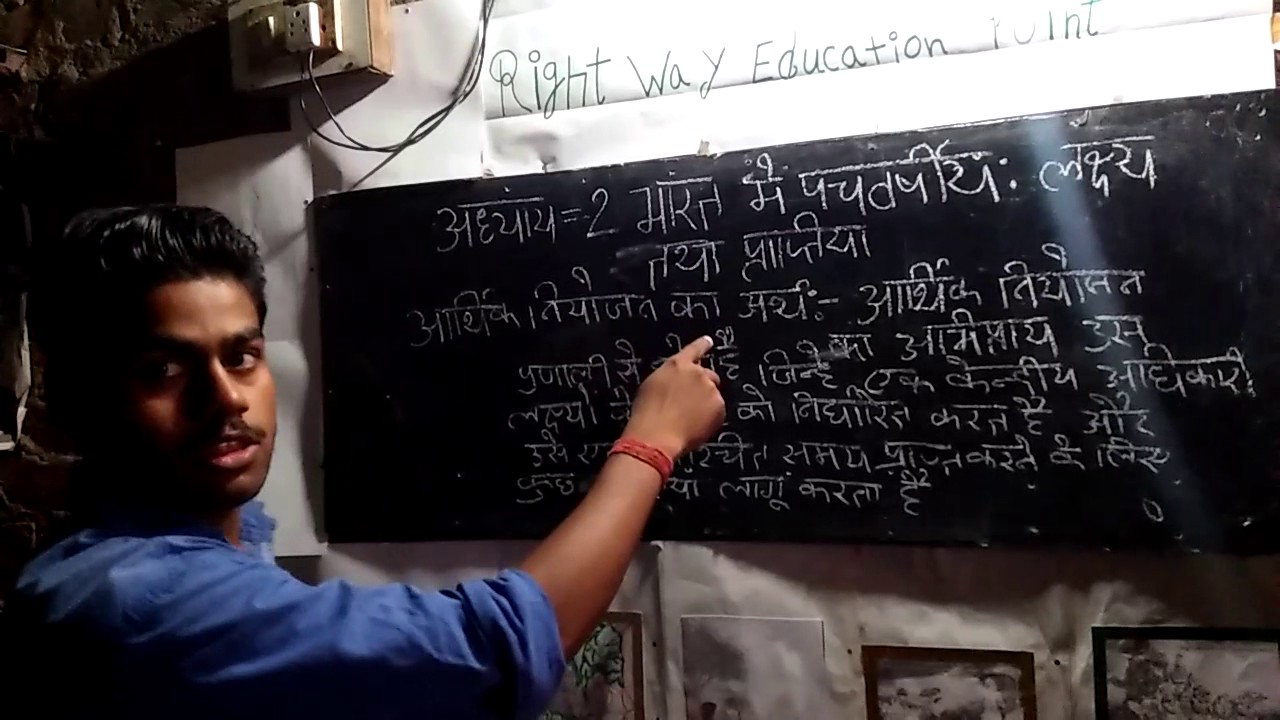 Right Way Education Point
अध्याय=2 भारत में पंचवर्षीय: लक्ष्य
तथा प्राप्तिया
आर्थिक नियोजन का अर्थ:- आर्थिक नियोजन
का अभिप्राय उस
प्रणाली से है जिन्हें एक केन्द्रीय अधिकारी
लक्ष्यो को निर्धारित करत है और
उसे समय प्राप्त करने के लिए
कुछ लागू करता है